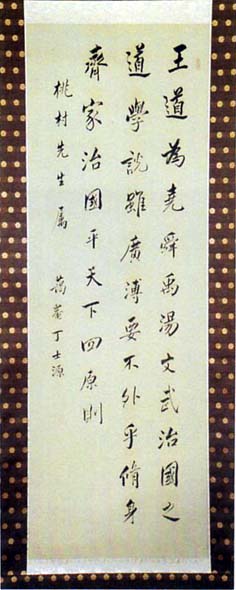 王道為堯舜禹湯文武治國之
道學說雖廣溥要不外乎脩身
齊家治國平天下四原則
桃村先生屬 蒻盦丁士源